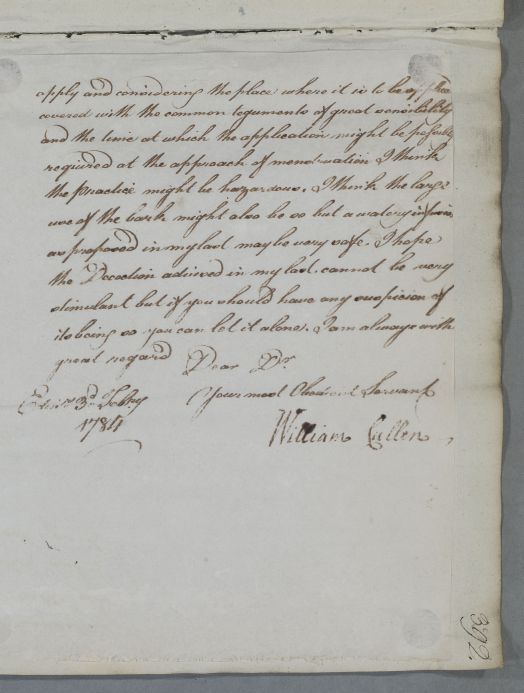 apply and considering the place where it is to be
covered with the common teguments of great sensibility
and the time at which the application might be possibly
required at the approach of menstruation I think
the practice might be hazardous. I think the large
use of the bark might also be so but a watery infusion
as proposed in my last may be very safe. I hope
the Decoction advised in my last cannot be very
stimulant but if you should have any suspicion of
its being so you can let it alone. I am always with
great regard Dear Dr.
Your most Obedient Servant
Edinr. 3d. Febry
1784
William Cullen
392.